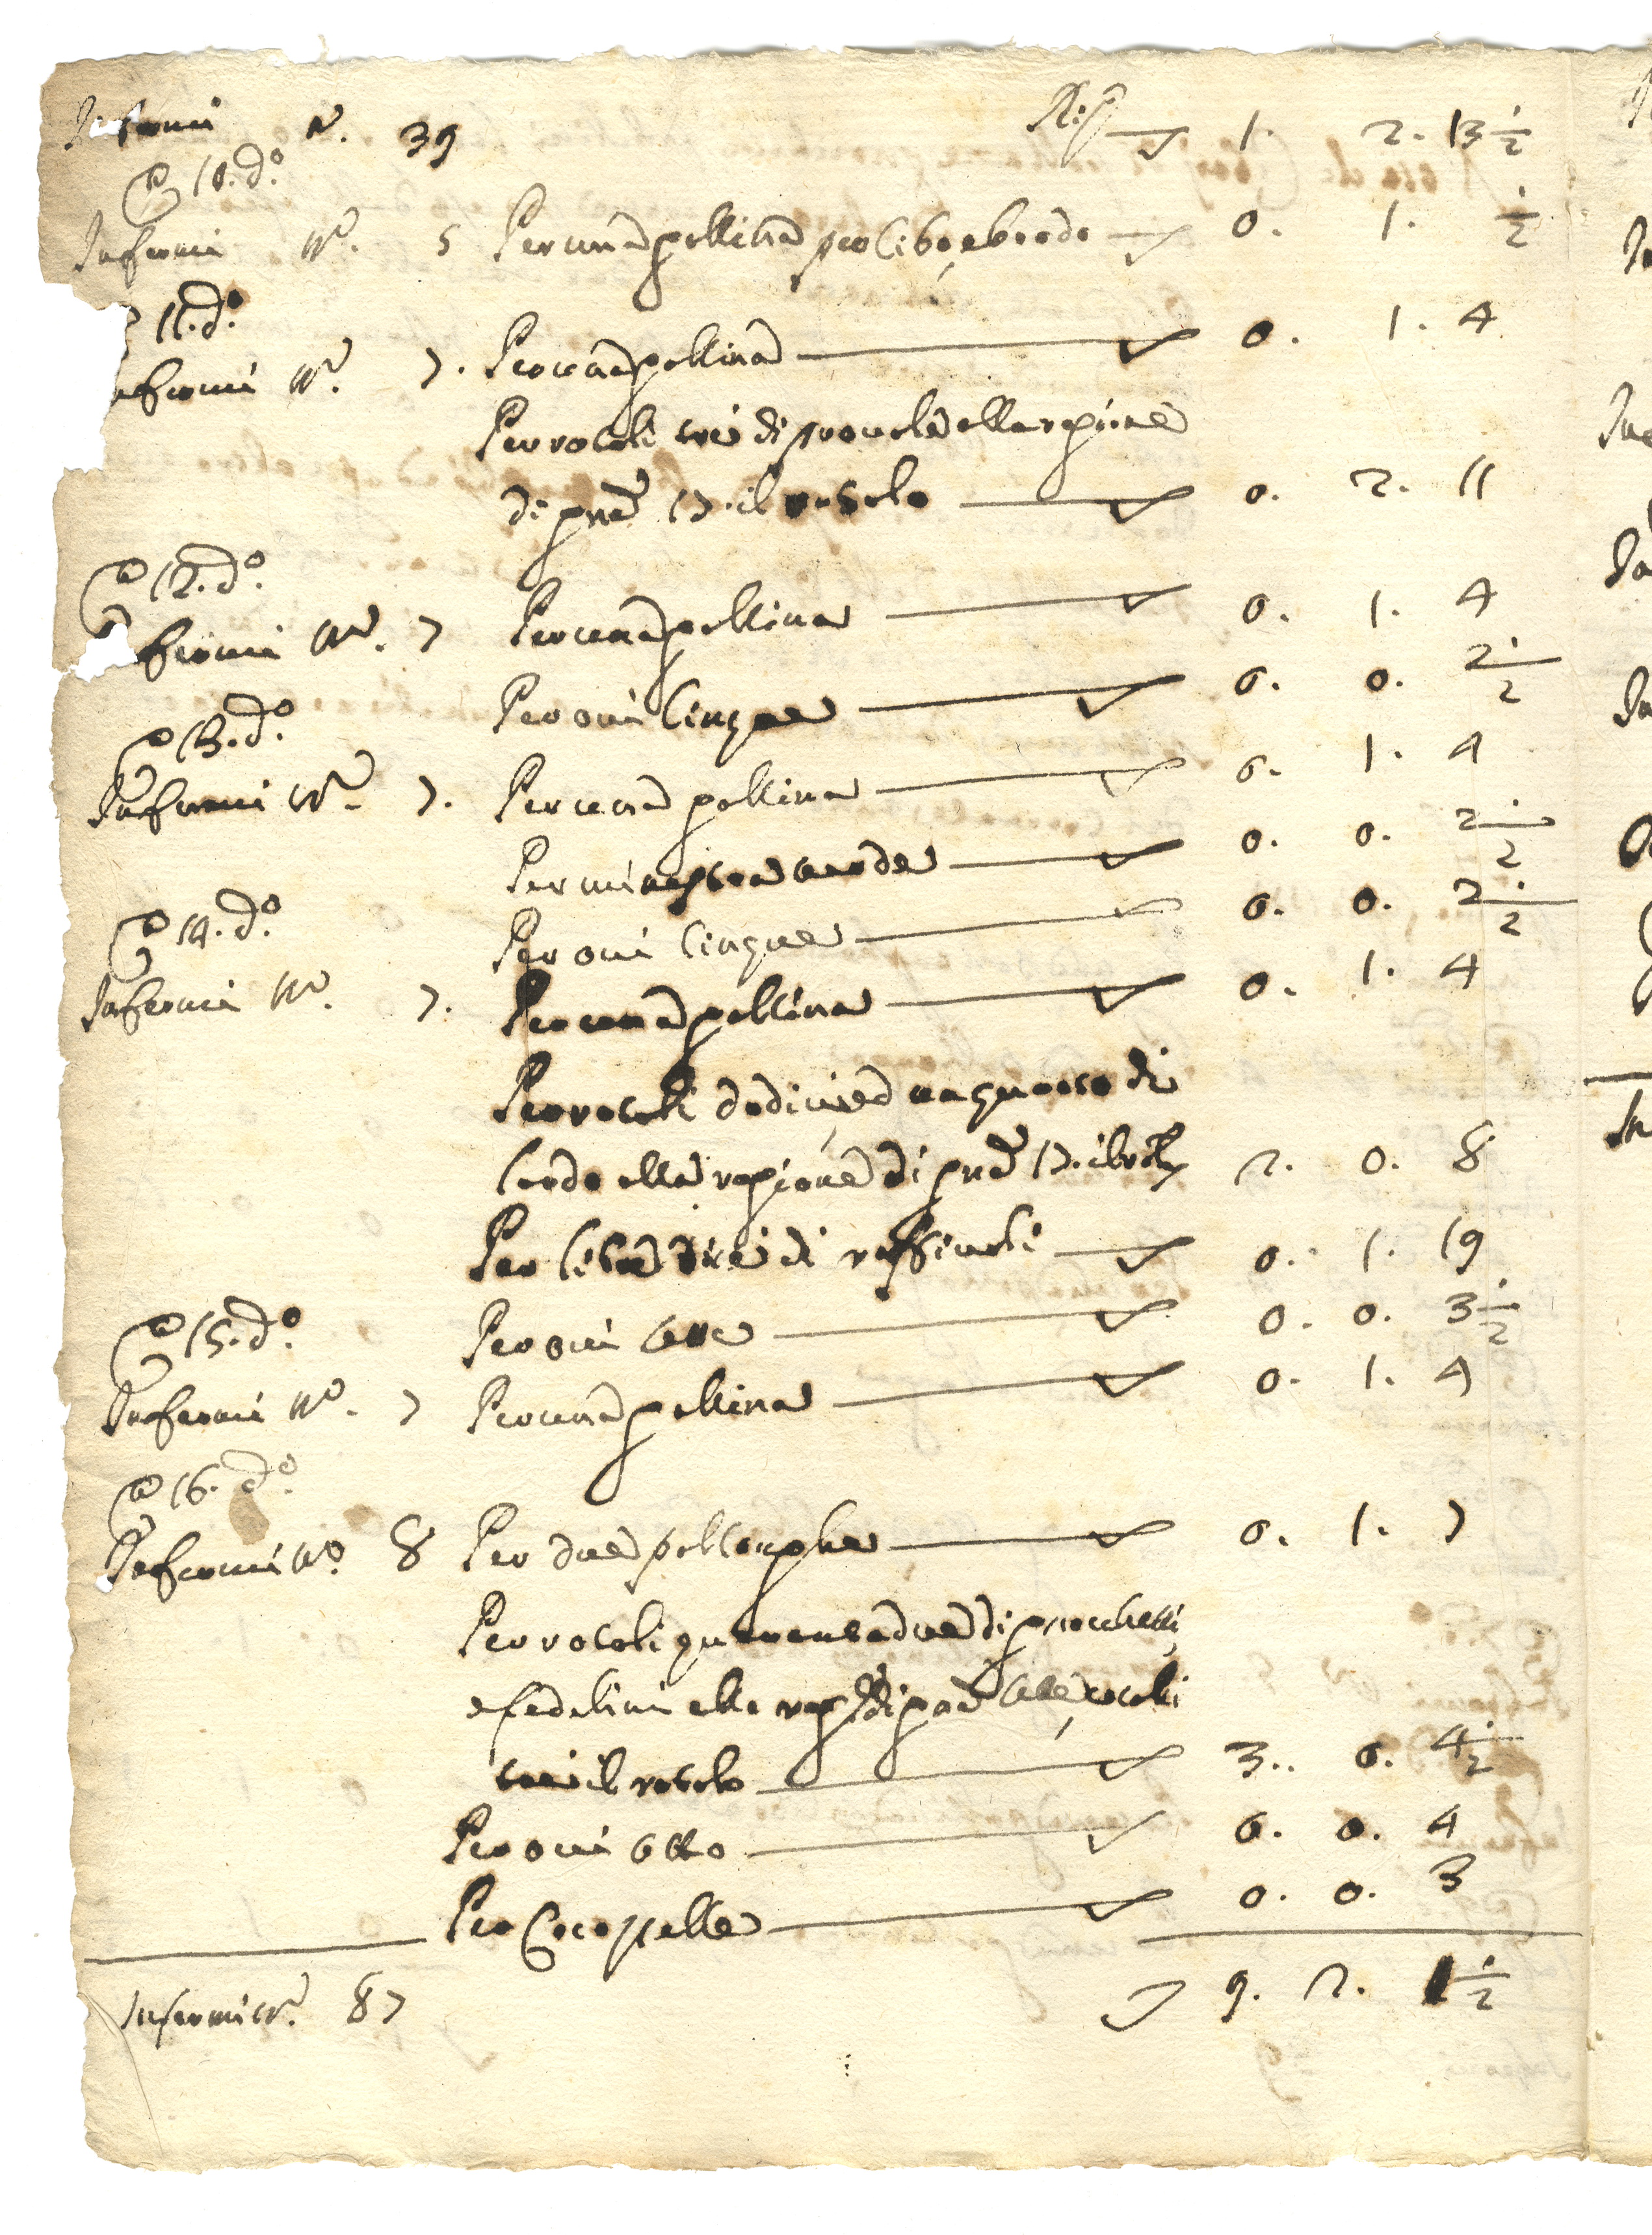 Infermi N. 39 Rip 1. 2. 13 1/2
A 10. do.
Infermi No. 5 Per una gallina per cibo, e brodo 0. 1. 1/2
11. do.
nfermi No. 7. Per una gallina 0. 1. 4
Per rotoli trè di provola alla ragione
di grna 17. il rotolo 0. 2. 11
A 12. do.
fermi No. 7 Per una gallina 0. 1. 4
Per ovi cinque 0. 0. 2 1/2
A 13. do.
Infermi No. 7. Per una gallina 0. 1. 4
Per minestra verde 0. 0. 2 1/2
A 14. do.
Per ovi cinque 0. 0. 2 1/2
Infermi No. 7. Per una gallina 0. 1. 4
Per rotoli dodici, ed un quarto di
lardo alla ragione di grna 17. il rotlo 2. 0. 8
Per libre dieci di raffiuoli 0. 1. 19
A 15. do.
Per ovi sette 0. 0. 3 1/2
Infermi No. 7 Per una gallina 0. 1. 4
A 16. do.
Infermi No. 8 Per due pollanghe 0. 1. 7
Per rotoli quarantadue di gnocchetti,
e fedelini alla rag.e di grna sette, cavalli
trè il rotolo 3. 0. 4 1/2
Per ovi otto 0. 0. 4
Per Cocozzelle 0. 0. 3
Infermi No. 87 9. 2. 1 1/2